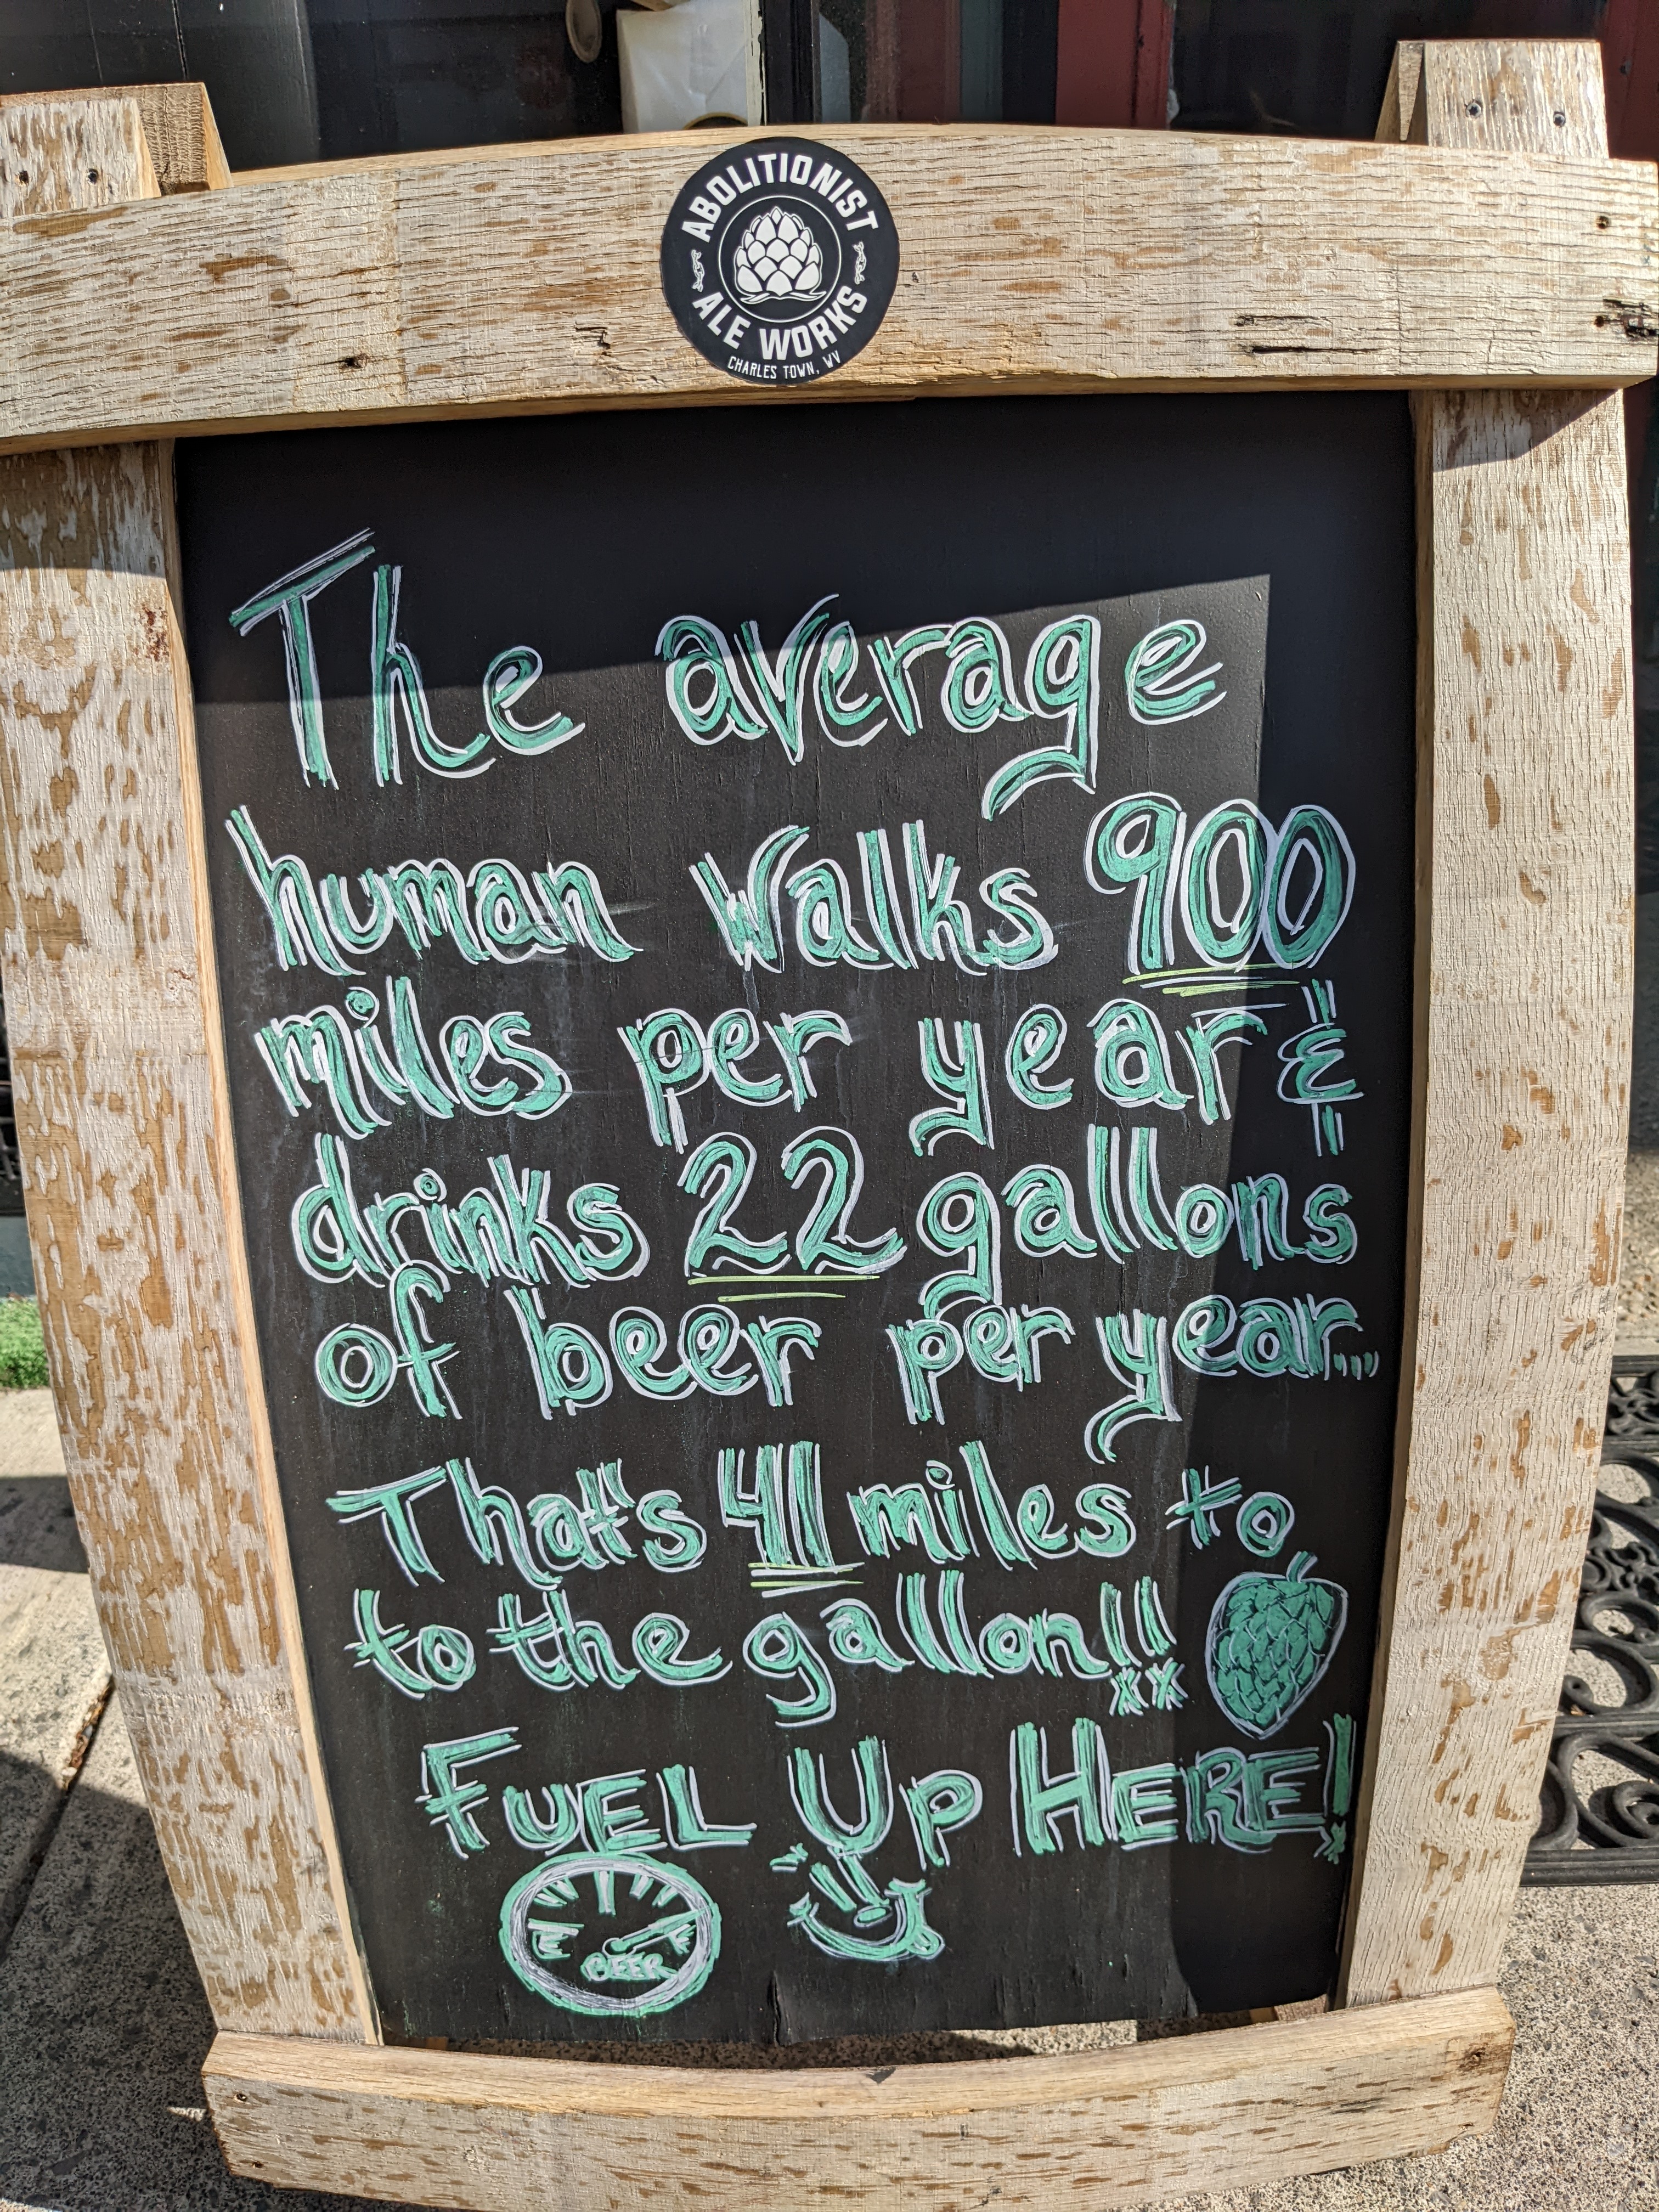 ABOLITIONIST
ALE WORKS
CHARLES TOWN, WV
The average
human walks 900
miles per year &
drinks 22 gallons
of beer per year...
That's 41 miles to
to the gallon!!
FUEL UP HERE!
E F
BEER